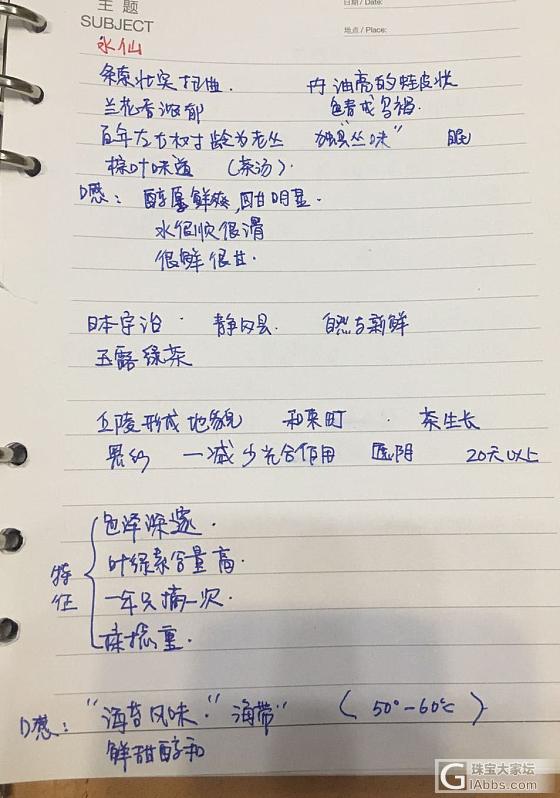 主 题
SUBJECT
日期 / Date:
地点 / Place:
水仙
条索壮实扭曲. 内油亮的蛙皮状
兰花香浓郁 色青或乌褐.
百年左右树龄为老丛 独具"丛味"
棕叶味道 (茶汤).
口感: 醇厚鲜爽, 回甘明显.
水很顺很滑
很鲜很甘.
日本宇治 静冈县. 自然与新鲜
玉露绿茶
丘陵形成地貌 和束町 . 茶生长
一减少光合作用 遮阴 20天以上
特征
色泽深邃.
叶绿素含量高.
一年只摘一次.
揉捻重.
口感: "海苔风味." 海带" (50°-60℃)
鲜甜醇和
珠宝大家坛
GIAbbs.com